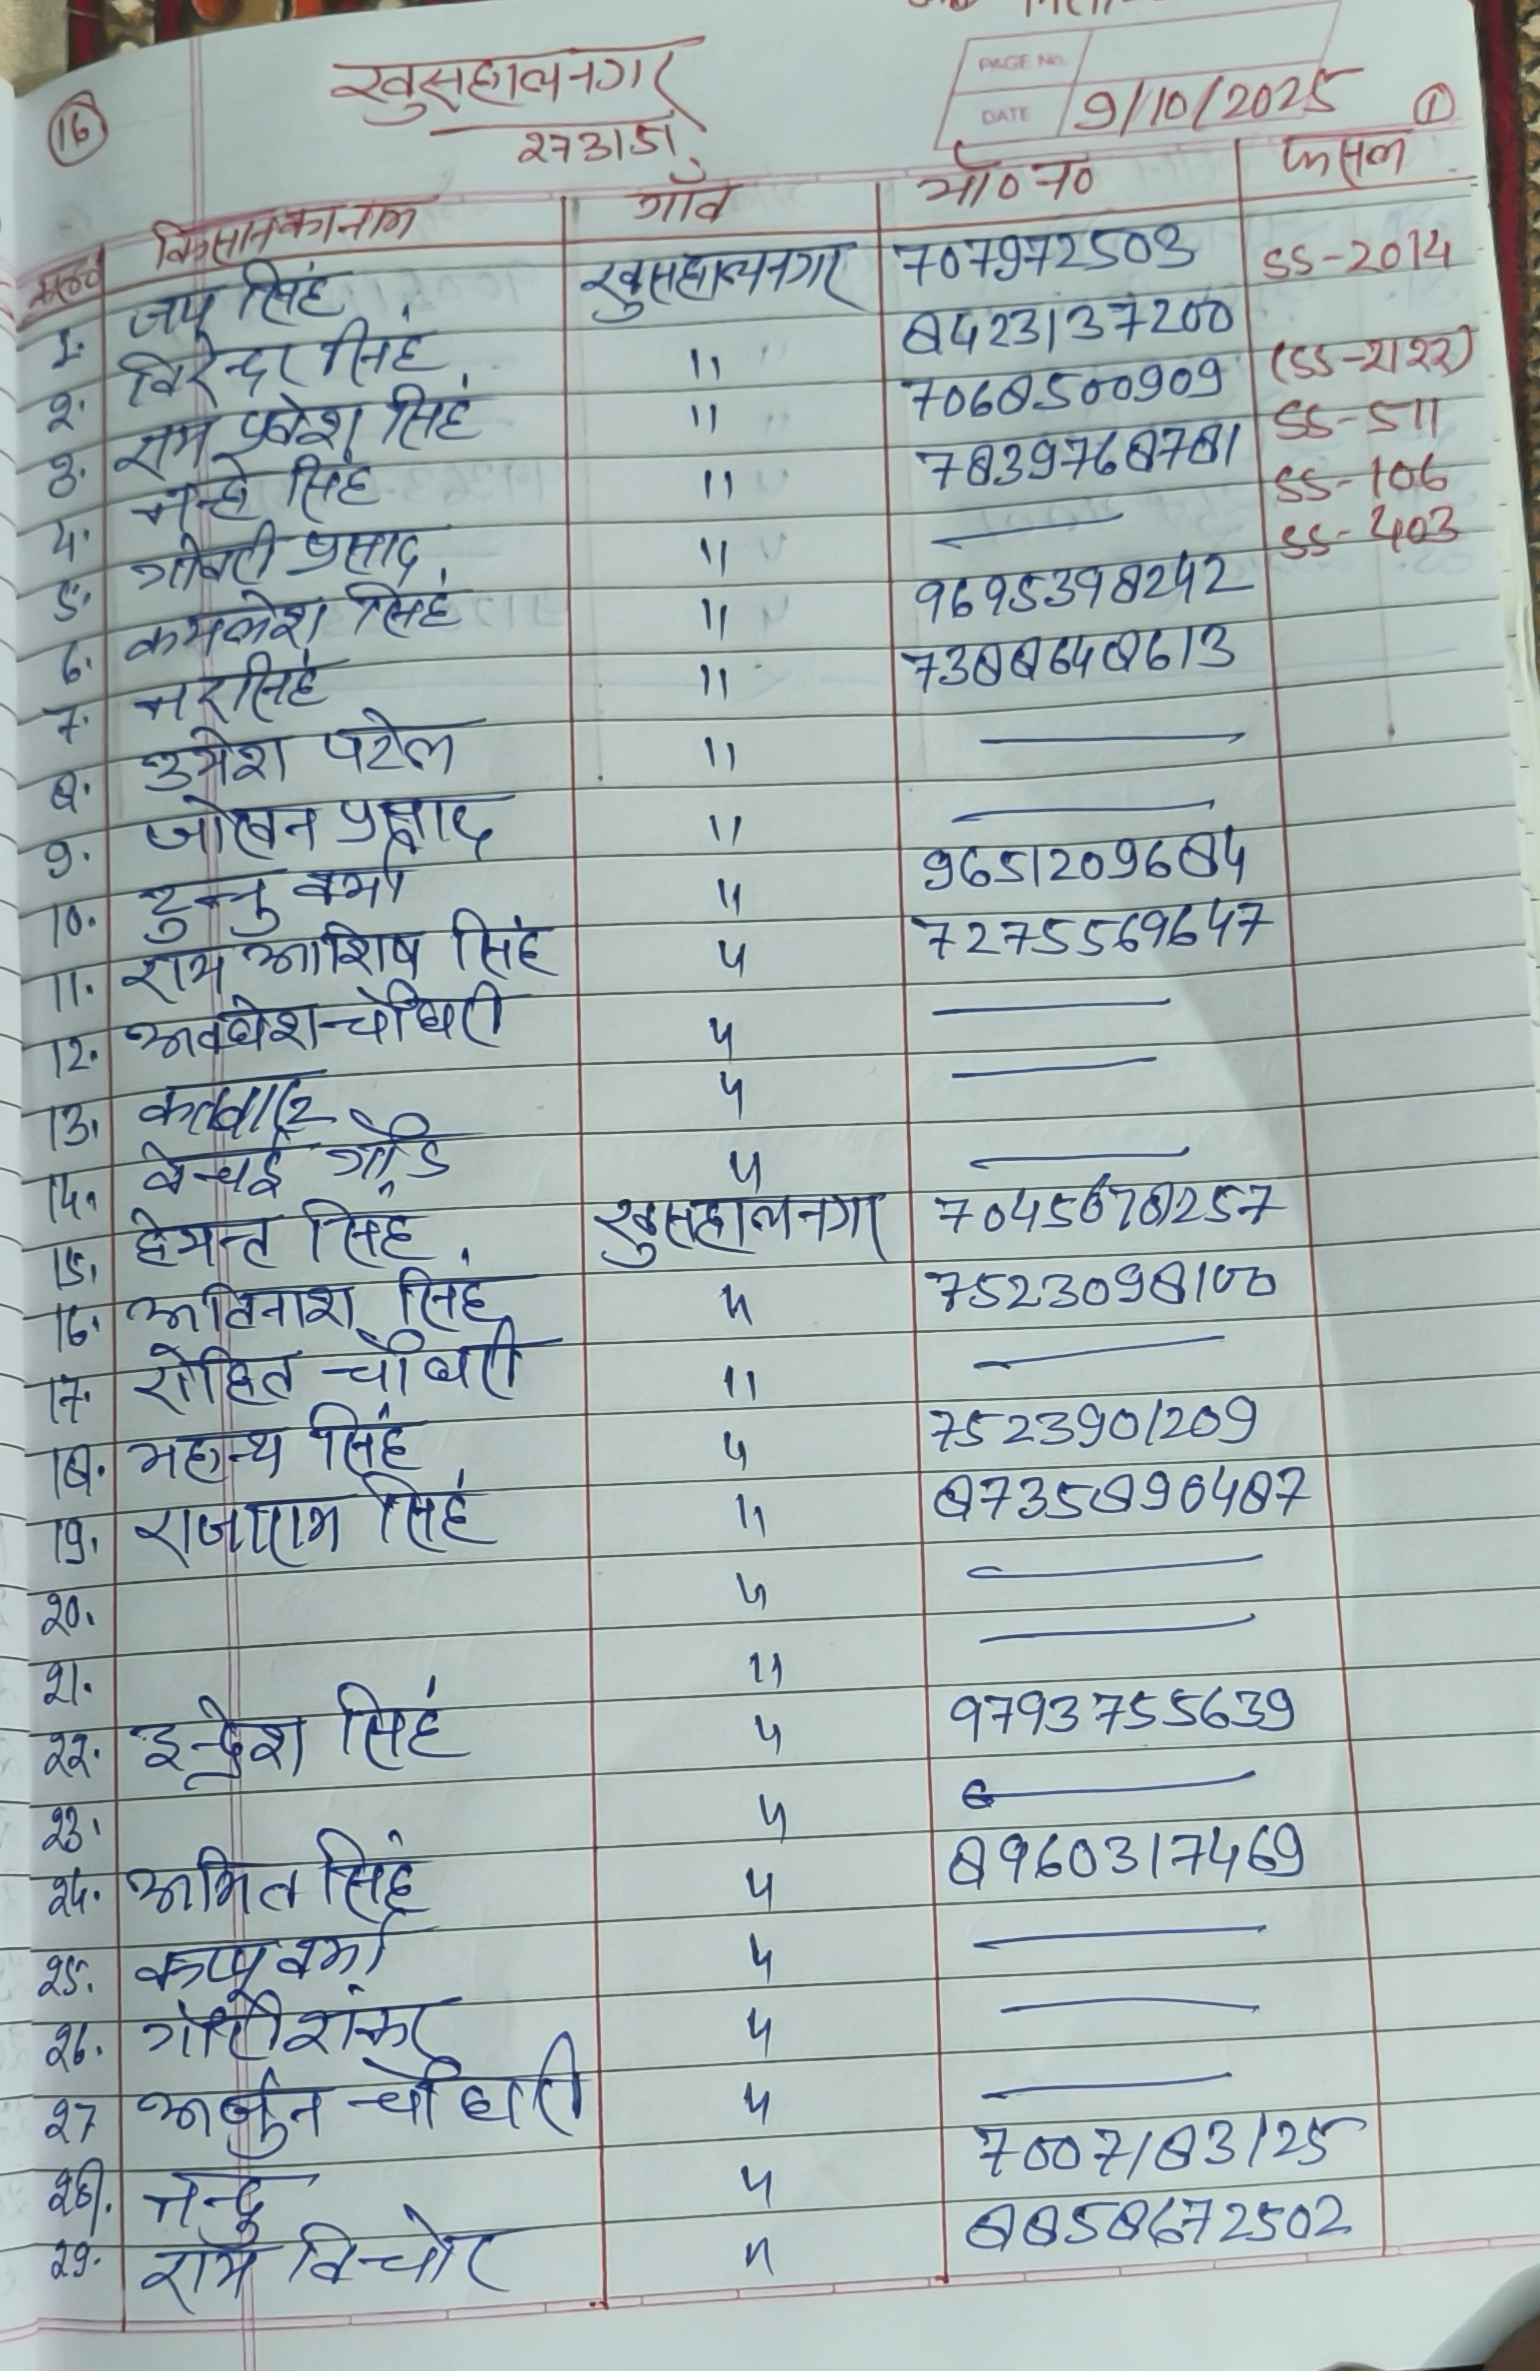 16
खुसहालनगर
273151
PAGE No.
DATE 9/10/2025
1
क्र०सं० किसान का नाम गाँव मो० न० फसल
1. जयु सिंह खुसहालनगर 707972503 SS-2014
2. विरेन्दर सिंह 〃 8423137200
3. राम प्रवेश सिंह 〃 7068500909 (SS-2122)
4. नन्हे सिंह 〃 7839768781 SS-511
5. गोमती प्रसाद 〃 — SS-106
6. कमलेश सिंह 〃 9695398242 SS-403
7. नरसिंह 〃 7388648613
8. उमेश पटेल 〃 —
9. जोखन प्रसाद 〃 —
10. टुन्नु वर्मा 〃 9651209684
11. राम आशिष सिंह 〃 7275569647
12. अवधेश चौधरी 〃 —
13. कतवारू 〃 —
14. बेचई गोंड 〃 —
15. हेमन्त सिंह खुसहालनगर 7045678257
16. अविनाश सिंह 〃 7523098100
17. रोहित चौधरी 〃 —
18. महान्थ सिंह 〃 7523901209
19. राजाराम सिंह 〃 8735890487
20. 〃 —
21. 〃 —
22. इन्द्रेश सिंह 〃 9793755639
23. 〃 —
24. अमित सिंह 〃 8960317469
25. कप्पू वर्मा 〃 —
26. गौरीशंकर 〃 —
27 अर्जुन चौधरी 〃 —
28. नन्दु 〃 7007183125
29. राम विचोर 〃 8858672502